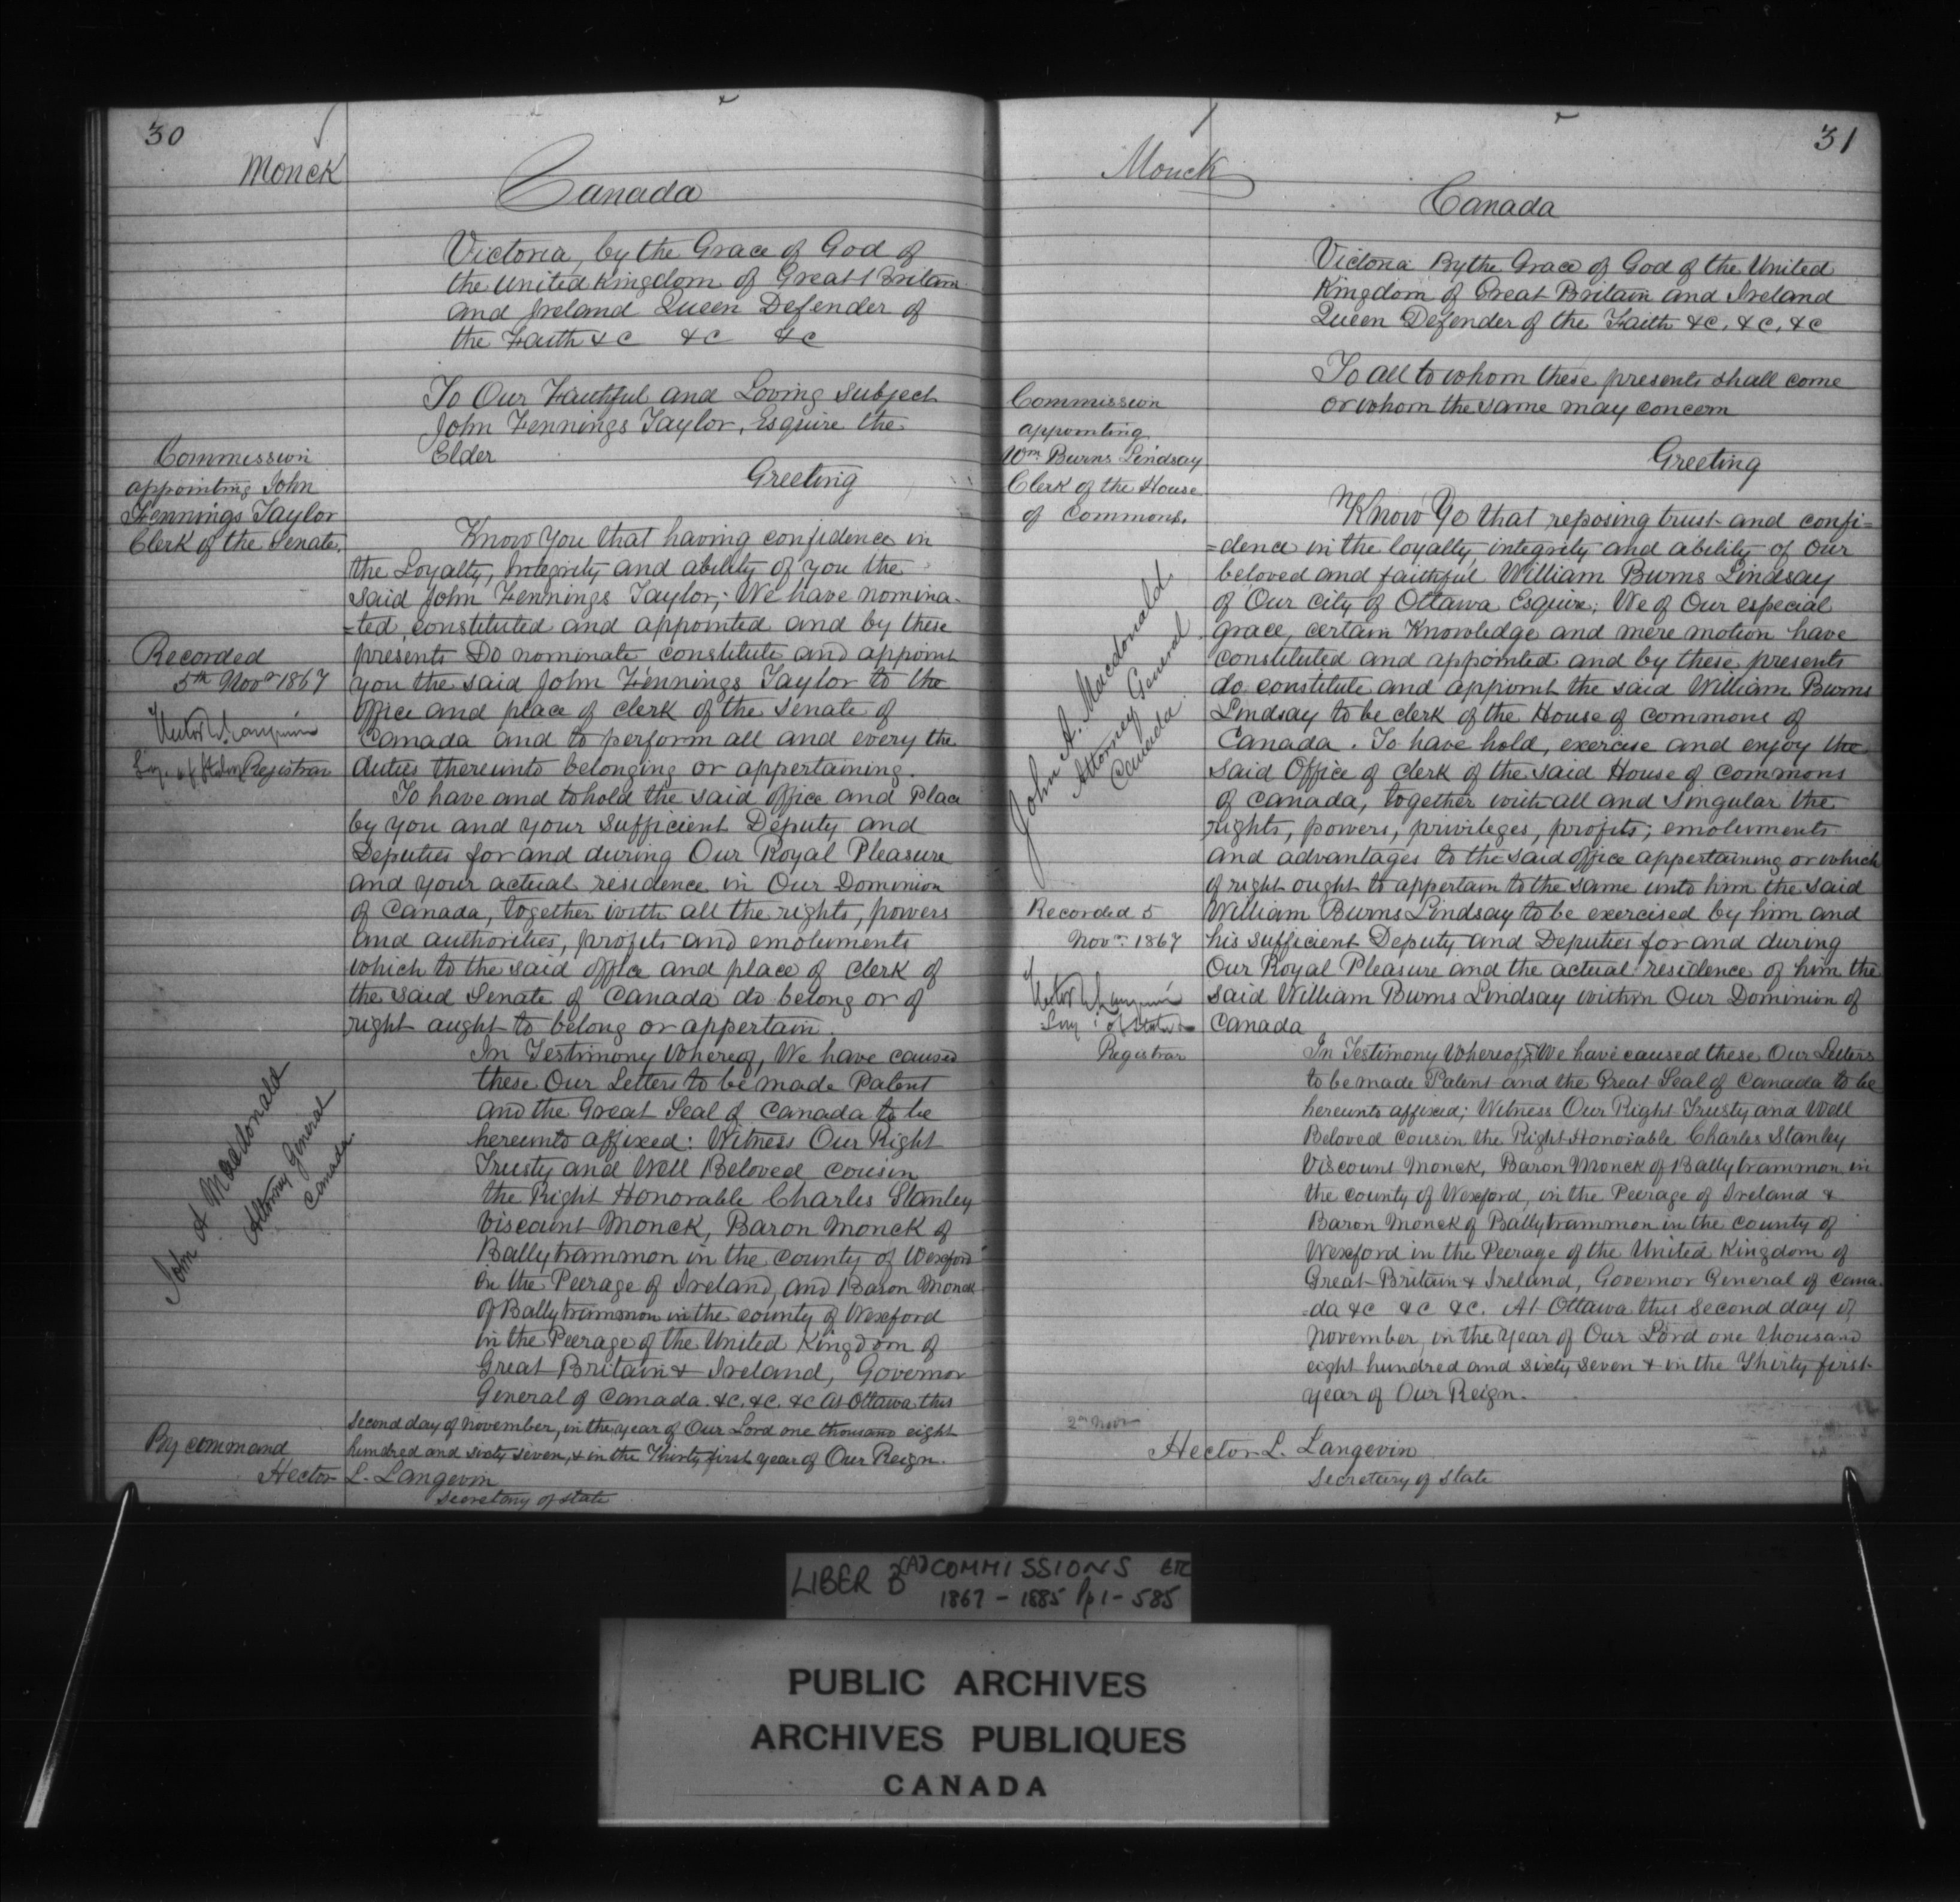 30
Monck
Canada
Victoria, by the Grace of God of
the United Kingdom of Great Britain
and Ireland Queen Defender of
the Faith &c &c &c
To Our Faithful and Loving Subject
John Fennings Taylor, Esquire the
Elder
Greeting
Commission
appointing John
Fennings Taylor
Clerk of the Senate.
Know you that having confidence in
the Loyalty, integrity and ability of you the
said John Fennings Taylor; We have nomina-
=ted, constituted and appointed and by these
presents Do nominate constitute and appoint
you the said John Fennings Taylor to the
office and place of clerk of the Senate of
Canada and to perform all and every the
duties thereunto belonging or appertaining.
To have and to hold the said office and Place
by you and your sufficient Deputy and
Deputies for and during Our Royal Pleasure
and your actual residence in Our Dominion
of Canada, together with all the rights, powers
and authorities, profits and emoluments
which to the said office and place of clerk of
the said Senate of Canada do belong or of
right aught to belong or appertain.
Recorded
5th Novr 1867
Hector L. Langevin
Registrar
In Testimony Whereof, We have caused
these Our Letters to be made Patent
and the Great Seal of Canada to be
hereunto affixed: Witness Our Right
Trusty and Well Beloved cousin
the Right Honorable Charles Stanley
Viscount Monck, Baron Monck of
Ballytrammon in the county of Wexford
in the Peerage of Ireland, and Baron Monck
of Ballytrammon in the county of Wexford
in the Peerage of the United Kingdom of
Great Britain & Ireland, Governor
General of Canada &c. &c. &c At Ottawa this
second day of november, in the year of Our Lord one thousand eight
hundred and sixty seven, & in the Thirty first year of Our Reign.
John A Macdonald
Attorney General
Canada.
By command
Hector L. Langevin
Secretary of State
31
Monck
Canada
Victoria By the Grace of God of the United
Kingdom of Great Britain and Ireland
Queen Defender of the Faith &c, &c, &c
To all to whom these presents shall come
or whom the same may concern
Greeting
Commission
appointing
Wm Burns Lindsay
Clerk of the House
of Commons.
Know Ye that reposing trust and confi=
=dence in the loyalty, integrity and ability of our
beloved and faithful William Burns Lindsay
of Our city of Ottawa Esquire; We of Our especial
grace, certain Knowledge and mere motion have
constituted and appointed and by these presents
do constitute and appoint the said William Burns
Lindsay to be clerk of the House of commons of
Canada. To have hold, exercise and enjoy the
said Office of clerk of the said House of commons
of canada, together with all and Singular the
rights, powers, privileges, profits; emoluments
and advantages to the said office appertaining or which
of right ought to appertain to the same unto him the said
William Burns Lindsay to be exercised by him and
his sufficient Deputy and Deputies for and during
Our Royal Pleasure and the actual residence of him the
said William Burns Lindsay within Our Dominion of
Canada
John A. Macdonald
Attorney General
Canada.
Recorded 5
Novr. 1867
Hector L. Langevin
Registrar
In Testimony Whereof, We have caused these Our Letters
to be made Patent and the Great Seal of Canada to be
hereunto affixed; Witness Our Right Trusty and Well
Beloved cousin the Right Honorable Charles Stanley
Viscount Monck, Baron Monck of Ballytrammon in
the county of Wexford, in the Peerage of Ireland &
Baron Monck of Ballytrammon in the county of
Wexford in the Peerage of the United Kingdom of
Great Britain & Ireland, Governor General of Cana-
=da &c &c &c. At Ottawa this Second day of
November, in the year of Our Lord one thousand
eight hundred and sixty seven & in the Thirty first
year of Our Reign.
2nd Novr
Hector L. Langevin
Secretary of State
LIBER B (A) COMMISSIONS ETC
1867 - 1885 Pp 1 - 585
PUBLIC ARCHIVES
ARCHIVES PUBLIQUES
CANADA